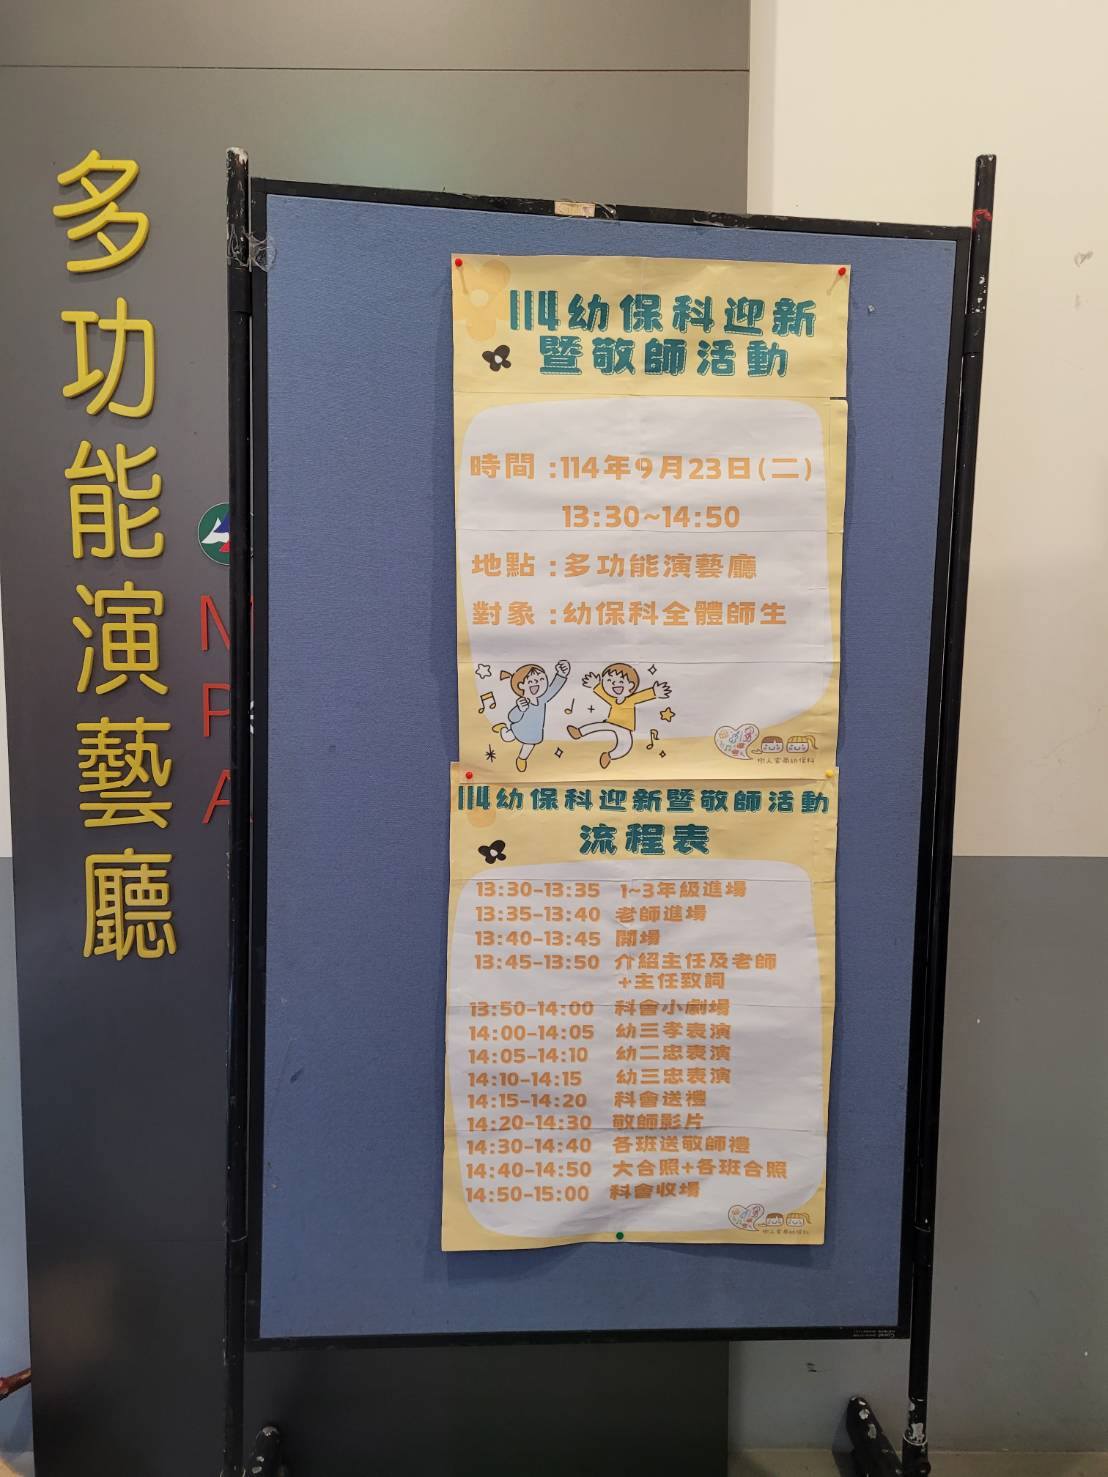 多功能演藝廳
M
P
A
114幼保科迎新
暨敬師活動
時間:114年9月23日(二)
13:30~14:50
地點:多功能演藝廳
對象:幼保科全體師生
樹人家商幼保科
114幼保科迎新暨敬師活動
流程表
13:30-13:35 1~3年級進場
13:35-13:40 老師進場
13:40-13:45 開場
13:45-13:50 介紹主任及老師
+主任致詞
13:50-14:00 科會小劇場
14:00-14:05 幼三孝表演
14:05-14:10 幼二忠表演
14:10-14:15 幼三忠表演
14:15-14:20 科會送禮
14:20-14:30 敬師影片
14:30-14:40 各班送敬師禮
14:40-14:50 大合照+各班合照
14:50-15:00 科會收場
樹人家商幼保科